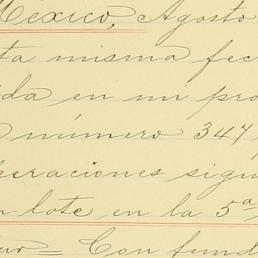 México, Agosto
ta misma fec
da en mi pro
número 344,
eraciones sigu
n lote en la 5ª
= Con fund